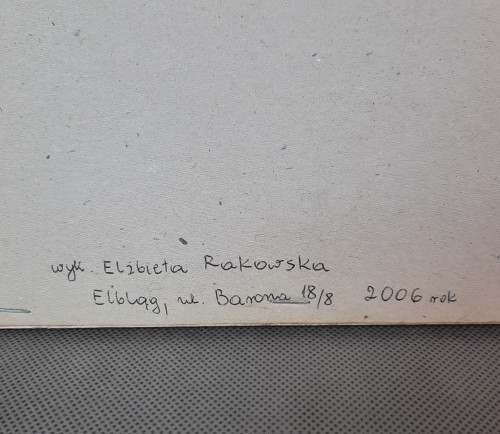 wyk. Elżbieta Rakowska
Elbląg, ul. Barona 18/8 2006 rok